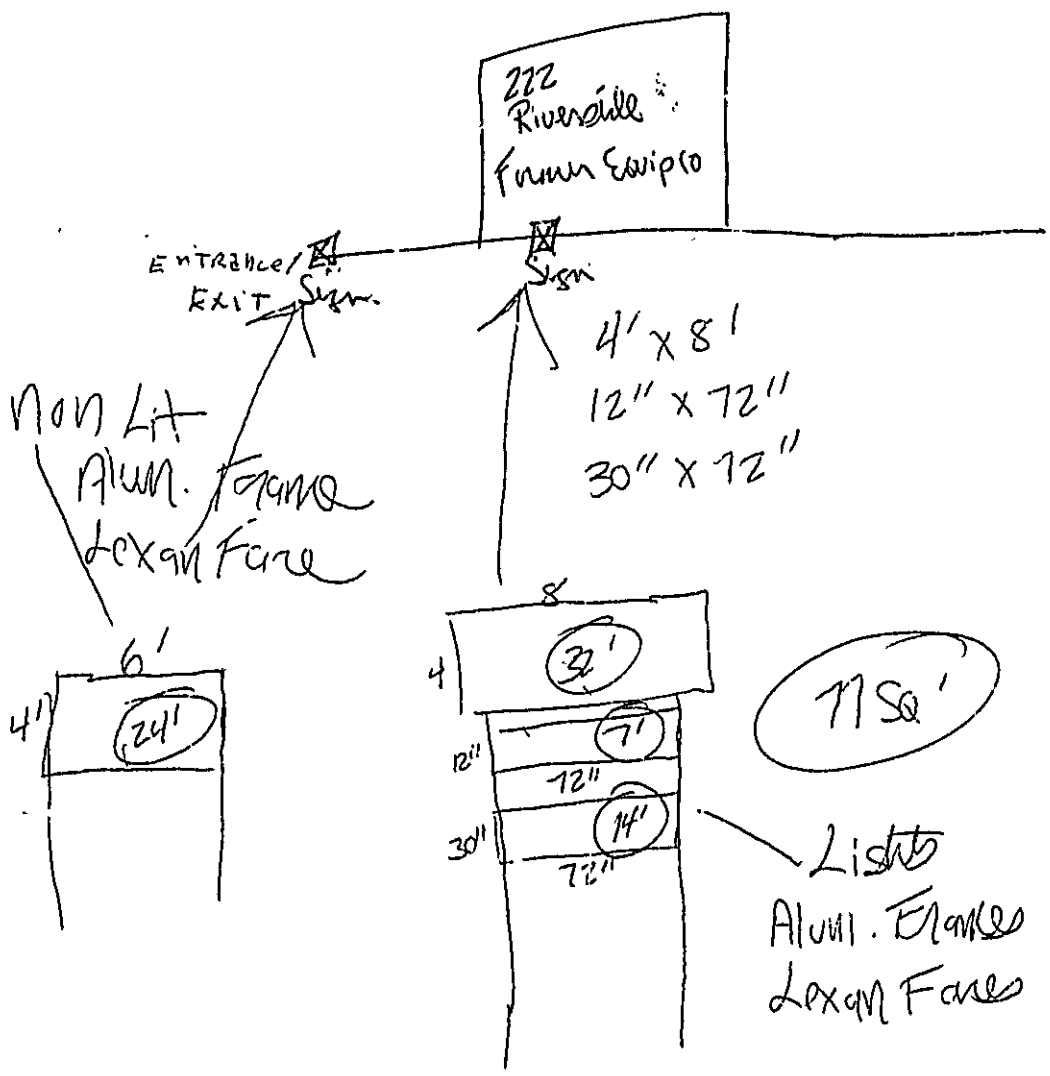 222
Riverside
Former Equipco
Entrance/
Exit Sign.
Sign
4' x 8'
12" x 72"
30" x 72"
Non Lit
Alum. Frame
Lexan Face
6'
4'
24'
8
4
32'
12"
7'
72"
30"
14'
72"
77 SQ '
Lights
Alum. Frames
Lexan Faces